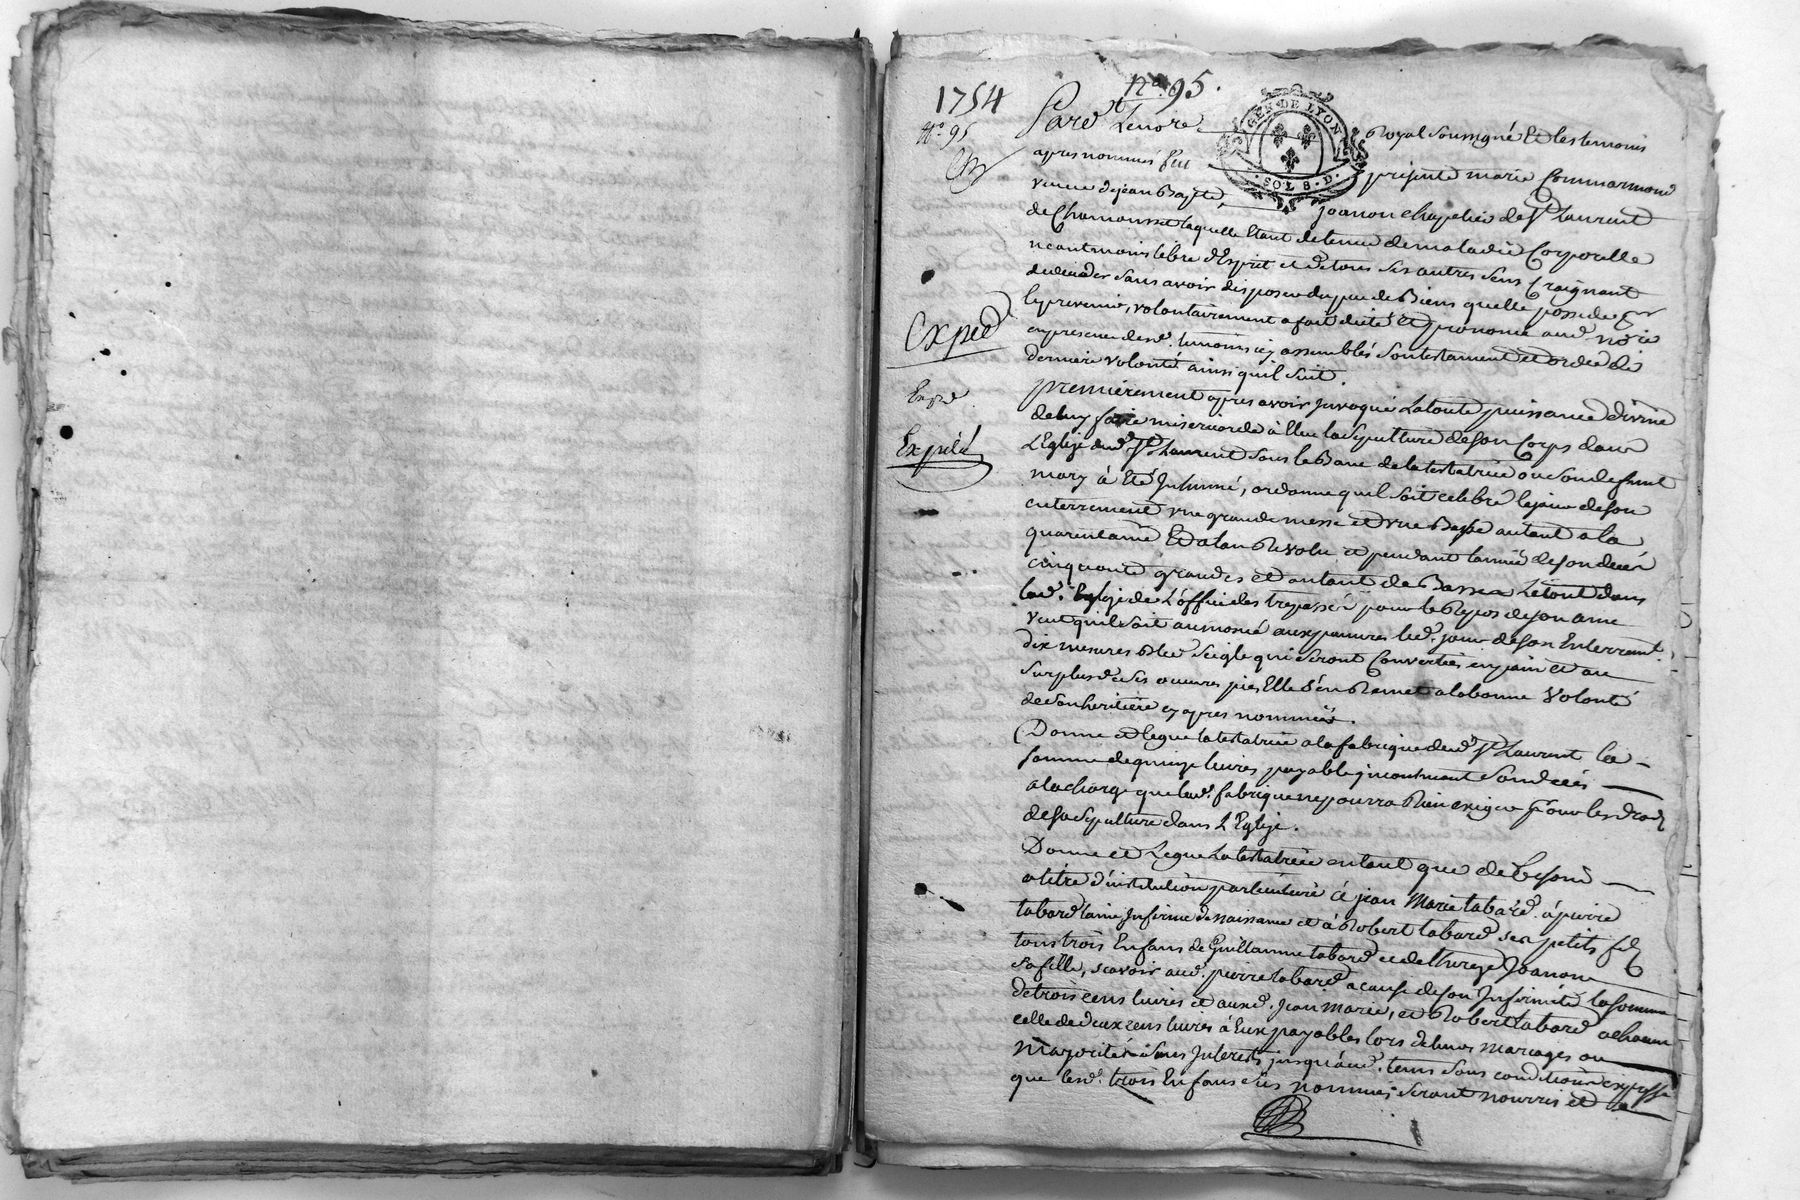 1754
nº. 95.
Nº. 95
GEN DE LYON
SOLS. D.
Expéd
Expéd
Expédé
Pard^t Lenore Royal Soussigné Et les temoins
apres nommés fut présente marie Commarmond
veuve de jean Bapte joanon chapelier de S^t Laurent
de Chamousset laquelle Etant detenue de maladie Corporelle
neantmoins libre d'Esprit et de tous ses autres sens Craignant
deceder sans avoir disposer du peu de Biens quelle possede
le prevenir, volontairement a fait dicté et prononcé aud. no^re
en presence desd. temoins icy assemblés son testament et ordre de
derniere volonté ainsi quil suit.
premièrement apres avoir jnvoqué La toute puissance divine
de luy faire misericorde à Elue la Sepulture de son Corps dans
L'Eglize dud. S^t Laurent sous le Banc de la testatrice ou son defunt
mary à Eté Jnhumé, ordonne quil soit celebré le jour de son
enterrement une grande messe et une Basse autant a la
quarantaine Et a lan Revolu et pendant lannée de son deces
cinquante grandes et autant de Basses Le tout dans
lad. Eglize de L'office des trepassés pour le Repos de son ame
veut quil soit aumoné aux pauvres led. jour de son Enterrem^t.
dix mesures Bled seigle qui seront Converties en pain et au
surplus de ses œuvres pies Elle s'en Remet a la bonne volonté
de son heritiere cy apres nommée.
Donne et legue la testatrice a la fabrique dud. S^t Laurent la
somme de quinze livres payable jncontinant son deces
a la charge que lad. fabrique ne pourra Rien exiger pour les droits
de sa Sepulture dans L'Eglize.
Donne et Legue La testatrice en tant que de besoin
a titre d'institution particuliere à jean Marie tabard. à pierre
tabard laine Jnfirme de naissance et à Robert tabard ses petits fils
tous trois Enfans de Guillaume tabard et de therese Joanon
sa fille, scavoir aud. pierre tabard a cause de son Jnfirmité la somme
de trois cens livres et auxd. Jean Marie, et Robert tabard a chacun
celle de deux cens livres à Eux payables lors de leurs mariages ou
Majorités sans Jnterests jusqu'aud. tems sous condition expresse
que lesd. trois Enfans sus nommés seront nourris et